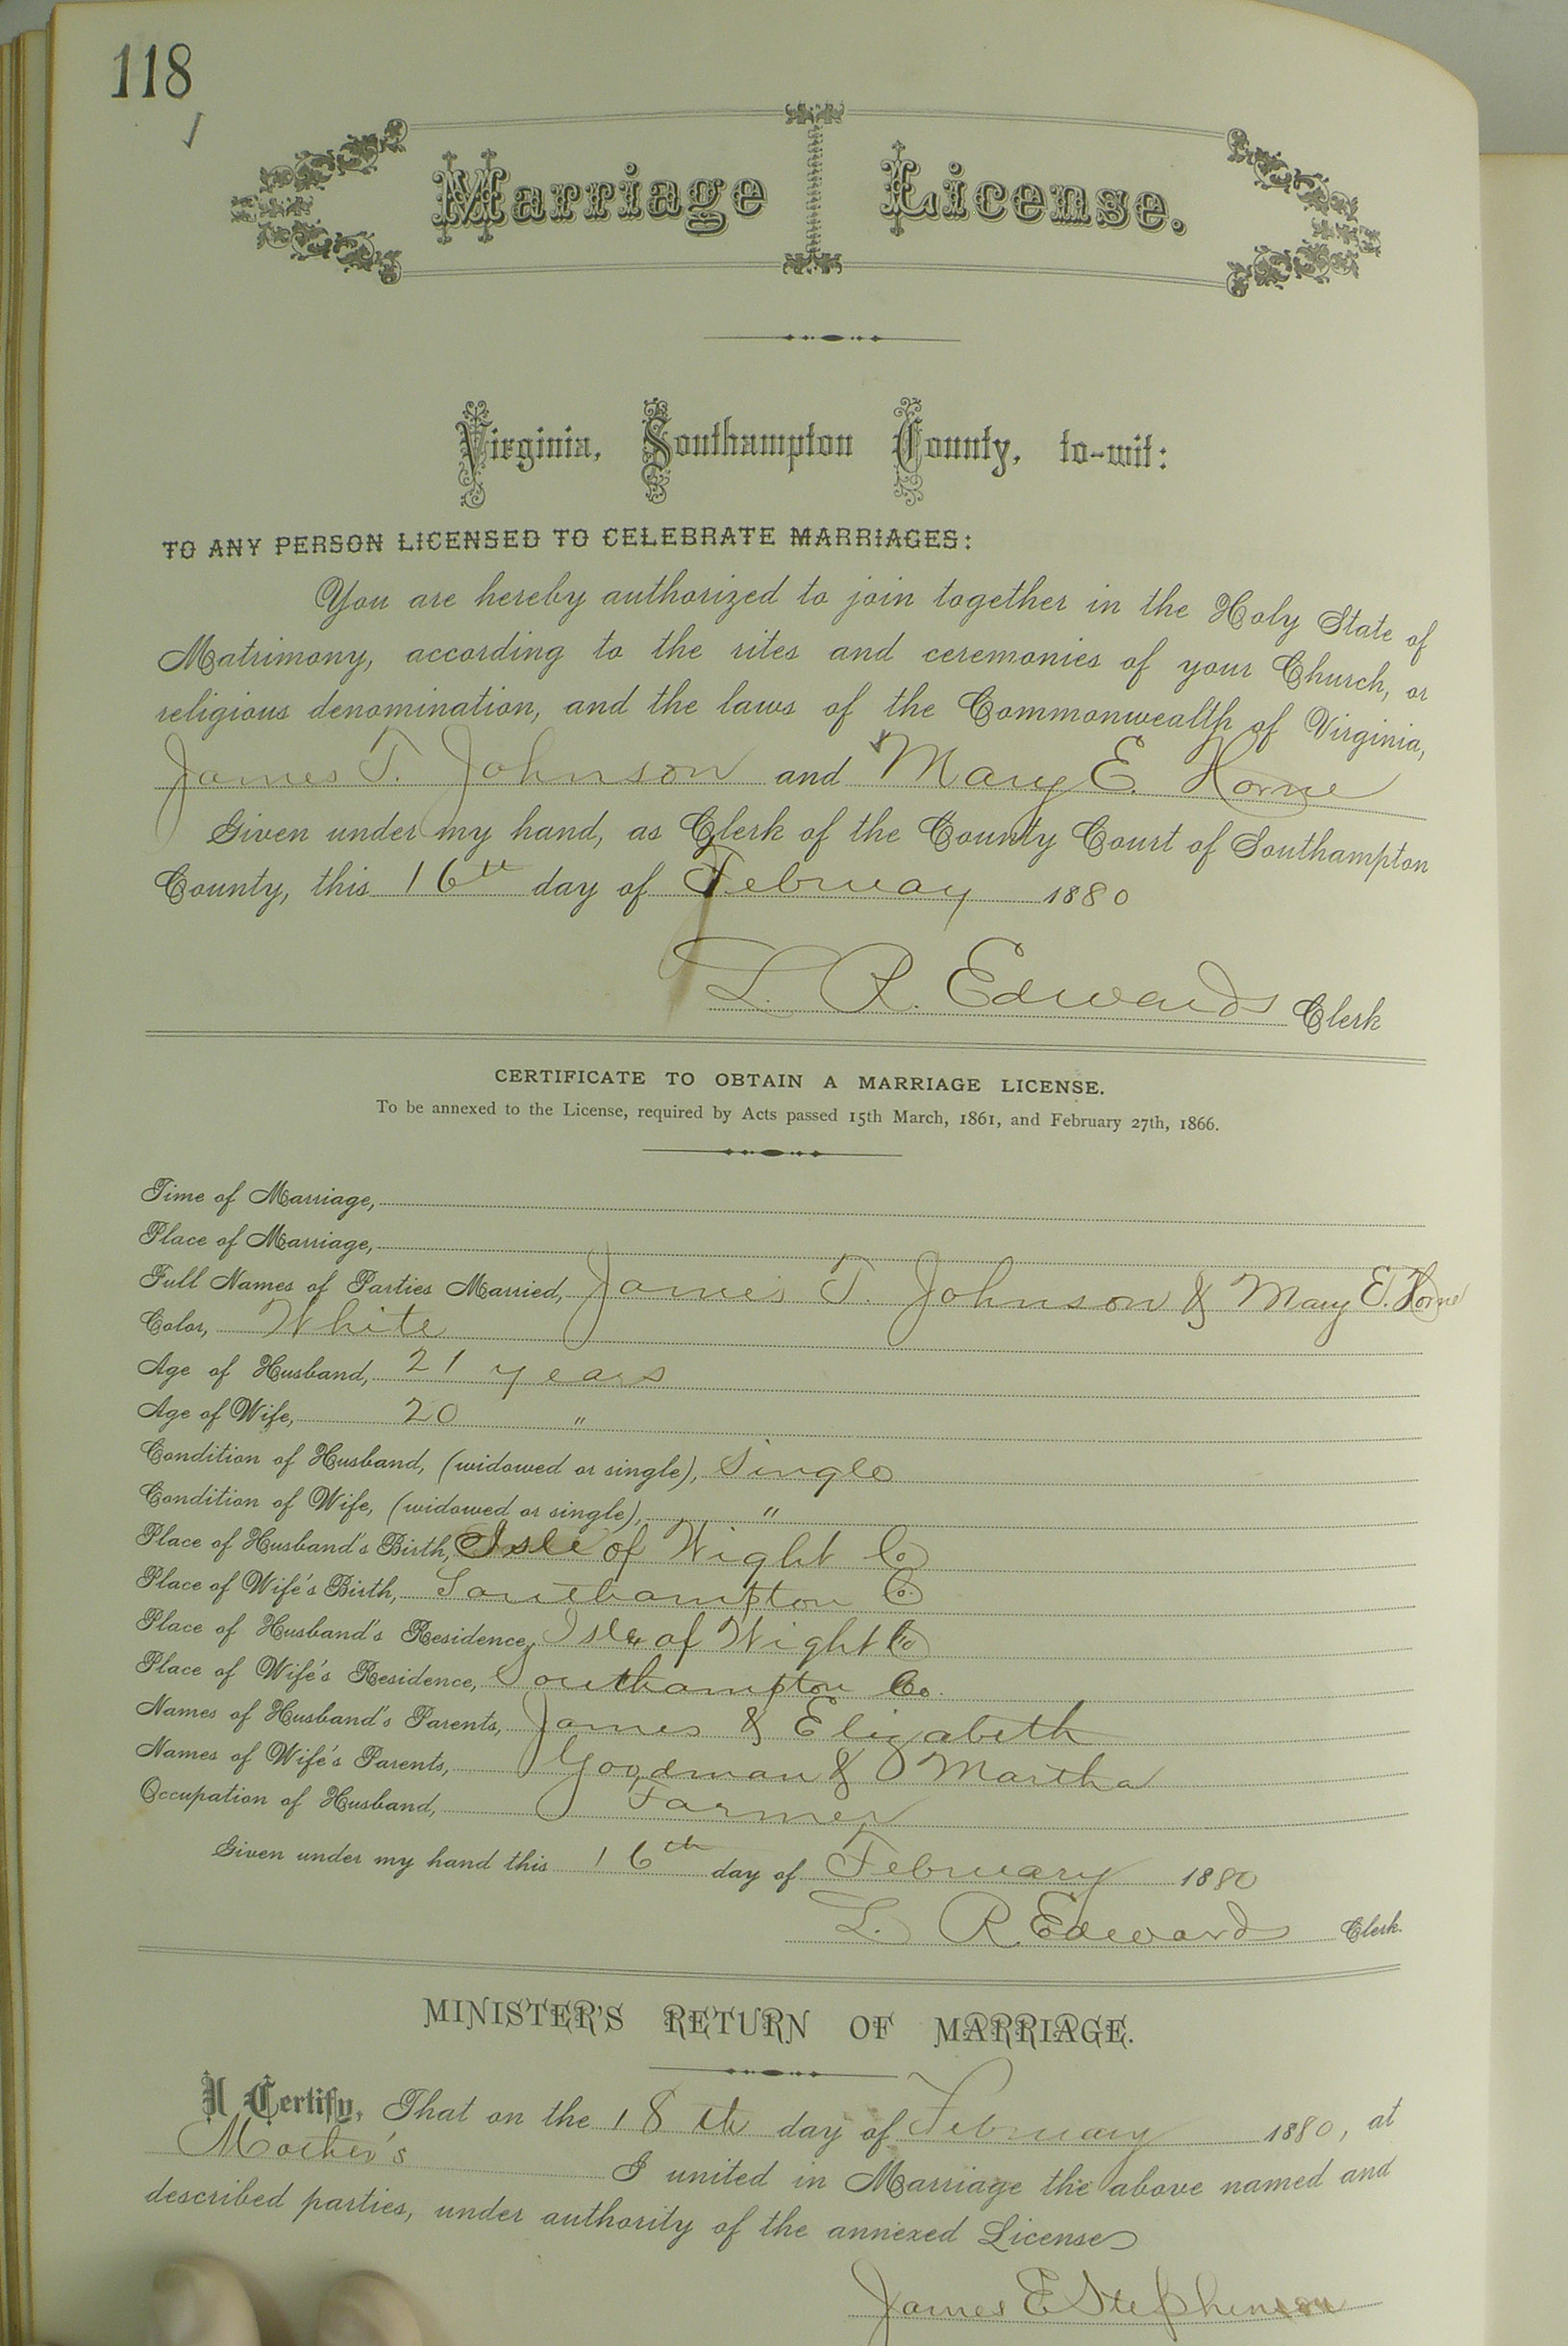 118
Marriage License.
Virginia, Southampton County, to-wit:
TO ANY PERSON LICENSED TO CELEBRATE MARRIAGES:
You are hereby authorized to join together in the Holy State of
Matrimony, according to the rites and ceremonies of your Church, or
religious denomination, and the laws of the Commonwealth of Virginia,
James T. Johnson and Mary E. Horne
Given under my hand, as Clerk of the County Court of Southampton
County, this 16th day of February 1880
L. R. Edwards Clerk
CERTIFICATE TO OBTAIN A MARRIAGE LICENSE.
To be annexed to the License, required by Acts passed 15th March, 1861, and February 27th, 1866.
Time of Marriage,
Place of Marriage,
Full Names of Parties Married, James T. Johnson & Mary E. Horne
Color, White
Age of Husband, 21 years
Age of Wife, 20 "
Condition of Husband, (widowed or single), Single
Condition of Wife, (widowed or single), "
Place of Husband's Birth, Isle of Wight Co
Place of Wife's Birth, Southampton Co.
Place of Husband's Residence, Isle of Wight Co
Place of Wife's Residence, Southampton Co.
Names of Husband's Parents, James & Elizabeth
Names of Wife's Parents, Goodman & Martha
Occupation of Husband, Farmer
Given under my hand this 16th day of February 1880
L. R. Edwards Clerk.
MINISTER'S RETURN OF MARRIAGE.
I Certify, That on the 18th day of February 1880, at
Mother's I united in Marriage the above named and
described parties, under authority of the annexed License
James E Stephenson